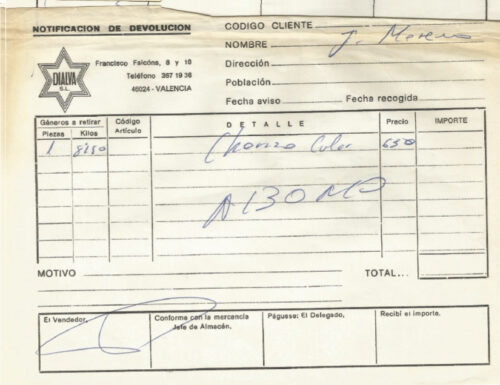 NOTIFICACION DE DEVOLUCION
CODIGO CLIENTE
NOMBRE J. Moreno
DIALVA
S.L.
Francisco Falcóns, 8 y 10
Teléfono 357 19 36
46024 - VALENCIA
Dirección
Población
Fecha aviso Fecha recogida
Géneros a retirar
Piezas Kilos Código Artículo DETALLE Precio IMPORTE
1 Chorizo Cular 650
MOTIVO TOTAL...
El Vendedor, Conforme con la mercancía Páguese: El Delegado, Recibí el importe.
Jefe de Almacén,